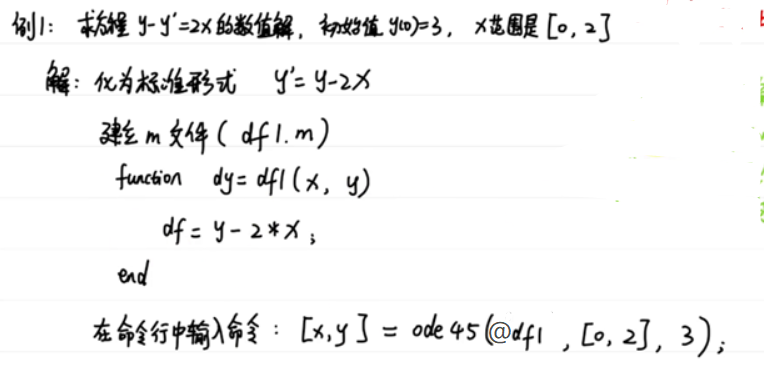 例1: 求方程 y-y'=2x的数值解, 初始值 y(0)=3, x范围是[0,2]
解: 化为标准形式 y'=y-2x
建立m文件(df1.m)
function dy=df1(x, y)
df=y-2*x;
end
在命令行中输入命令: [x,y]=ode45(@df1,[0,2],3);